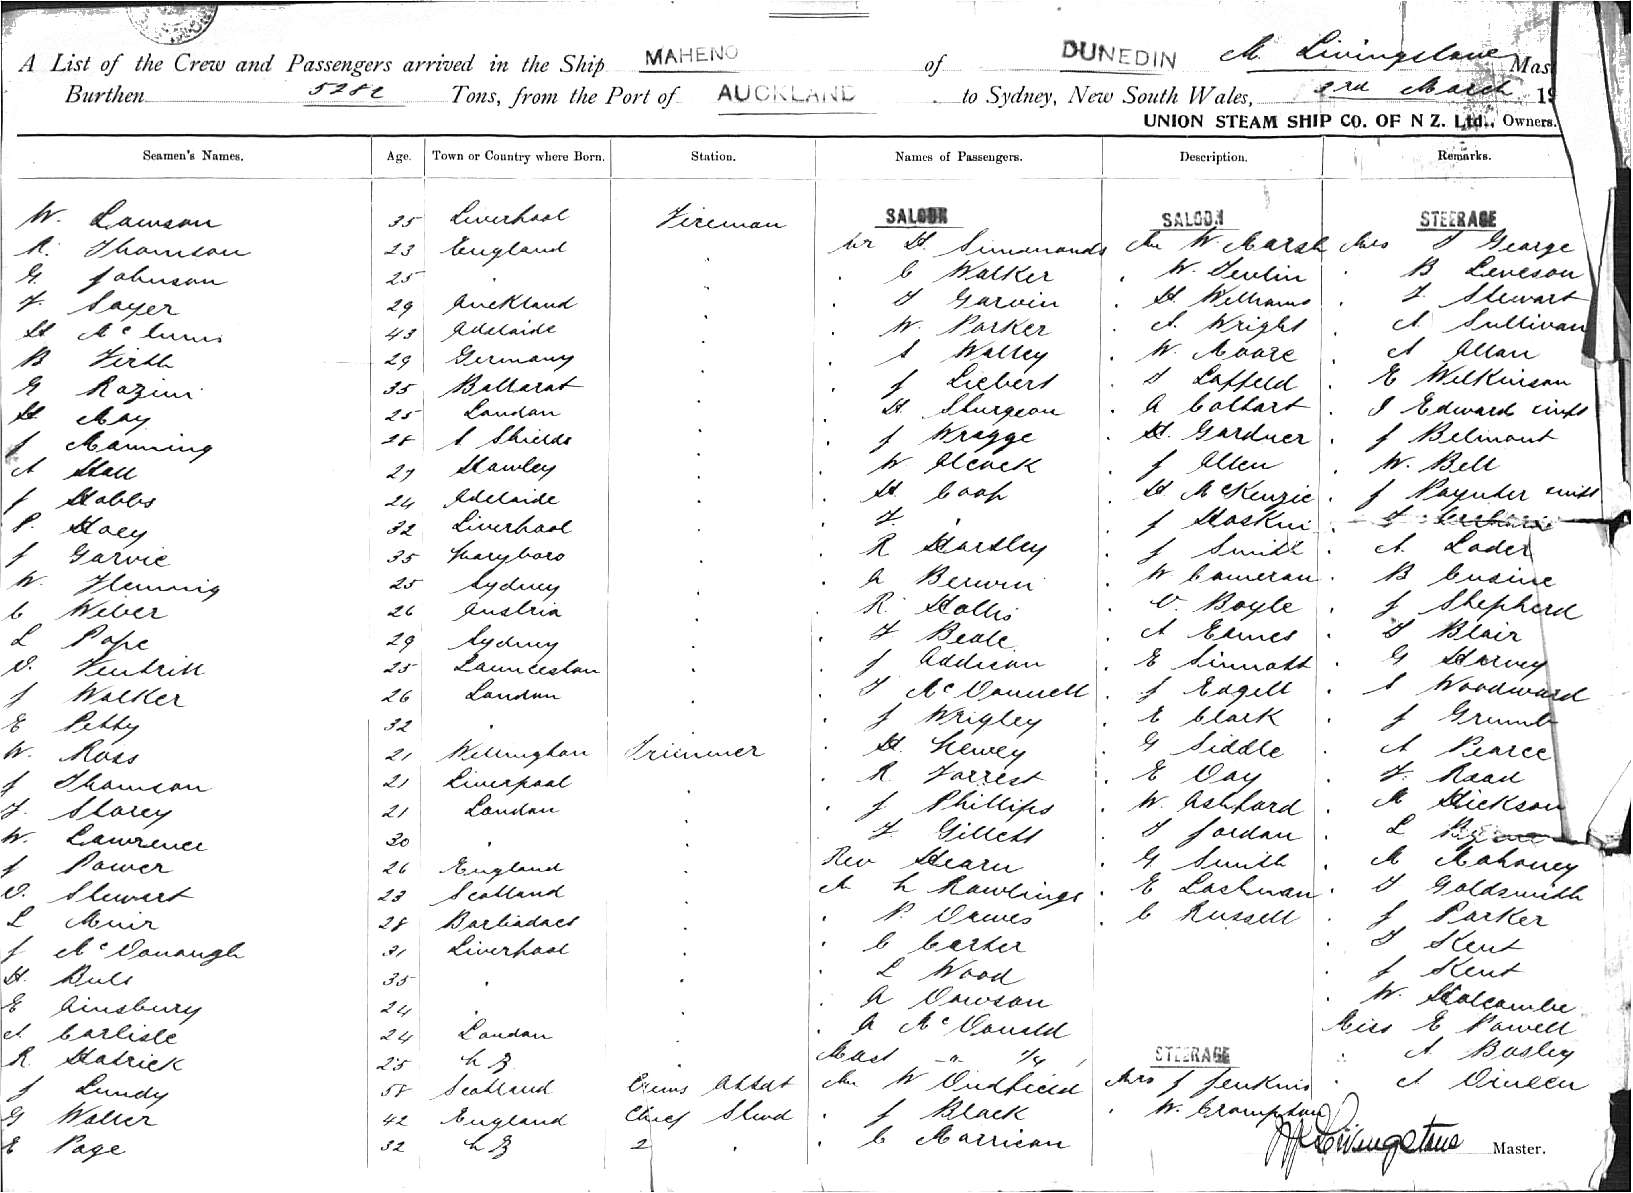 A List of the Crew and Passengers arrived in the Ship MAHENO of DUNEDIN M. Livingstone Mas
Burthen 5282 Tons, from the Port of AUCKLAND to Sydney, New South Wales, 3rd March 19
UNION STEAM SHIP CO. OF N Z. Ltd., Owners.
Seamen's Names. Age. Town or Country where Born. Station. Names of Passengers. Description. Remarks.
SALOON SALOON STEERAGE
W. Lawson 35 Liverpool Fireman Mr H Simmonds Mr W Marsh Mrs T George
R. Thomson 23 England . . C Walker . W. Devlin . B Leveson
G Johnson 25 . . . T Garvin . H Williams . F Stewart
F. Sayer 29 Auckland . . W. Parker . A. Wright . A Sullivan
H McInnis 43 Adelaide . . S Walley . W. Moore . A Allan
B Firth 29 Germany . . J Liebert . T Laffeld . E Wilkinson
G Rozini 35 Ballarat . . H Sturgeon . A Colhart . J Edward
H May 25 London . . J Wragge . H. Gardner . J Belmont
J Manning 28 S Shields . . W Alcock . J Allen . W. Bell
A Hall 27 Hawley . . H Coop . H McKenzie . J Poynter
J Hobbs 24 Adelaide . . F. . . J Hoskin . T
P. Hoey 32 Liverpool . . R Horsley . J Smith . A. Loder
J Garvie 35 Maryboro . . A Berwin . W Cameron . B Cusine
W. Fleming 25 Sydney . . R. Hollis . D. Boyle . J Shepherd
C Weber 26 Austria . . F Beale . A Eames . T Blair
L Pope 29 Sydney . . J Addison . E Sinnott . G Harvey
D. Fentrill 25 Launceston . . T McDonnell . J Edgell . S Woodward
J Walker 26 London . . J Wrigley . E Clark . J Grumb
E Petty 32 . . . H. Newey . G Siddle . A Pearce
W. Ross 21 Wellington Trimmer . R Forrest . E Day . F. Road
J Thomson 21 Liverpool . . J Phillips . W. Ashford . M Dickson
F. Storey 21 London . . F. Gillett . T Jordan . L
W. Lawrence 30 . . Rev Hearn . G Smith . M Mahoney
J Power 26 England . Mr N Rawlings . E Lashman . T Goldsmith
D. Stewart 23 Scotland . . P. Dawes . C Russell . J Parker
L Muir 28 Barbadoes . . C Carter . T Kent
J McDonough 31 Liverpool . . L Wood . J Kent
H. Buls 35 . . . A Dowson . W. Holcombe
E Ainsbury 24 . . . A McDonald Miss E Powell
A Carlisle 24 London . Mast STEERAGE . A Bosley
R. Hatrick 25 N Z . Mr W Oldfield Mrs J Jenkins . A Dineen
J Lundy 58 Scotland Crews Attdt . J Black . W. Crompton
G Walter 42 England Chief Stwd . C Morrison
E Page 32 N Z 2 .
M Livingstone Master.